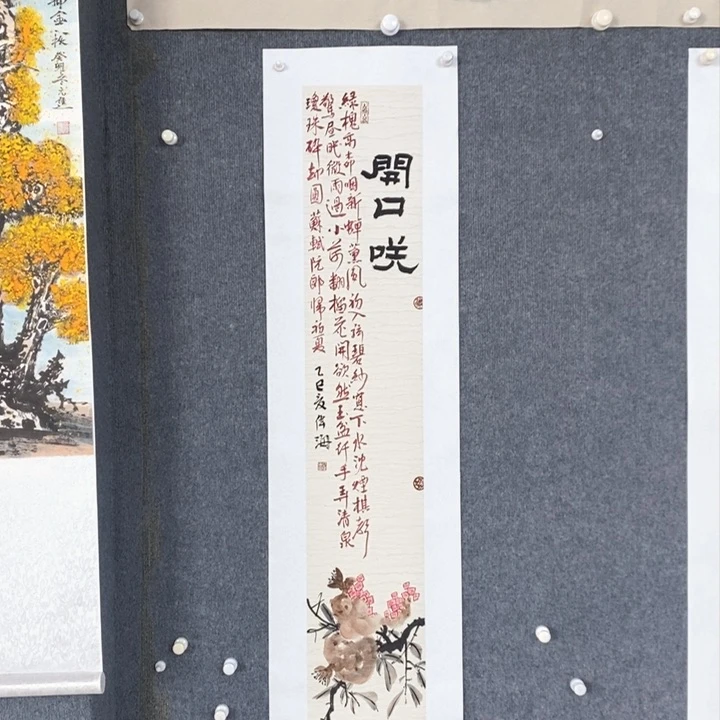 開口咲
綠槐高柳咽新蟬薰風初入弦碧紗窓下水沈煙棋聲
驚昼眠微雨過小荷翻榴花開欲然玉盆纤手弄清泉
瓊珠碎却圓 蘇軾阮郎歸初夏 乙巳夏海
金秋 癸卯年